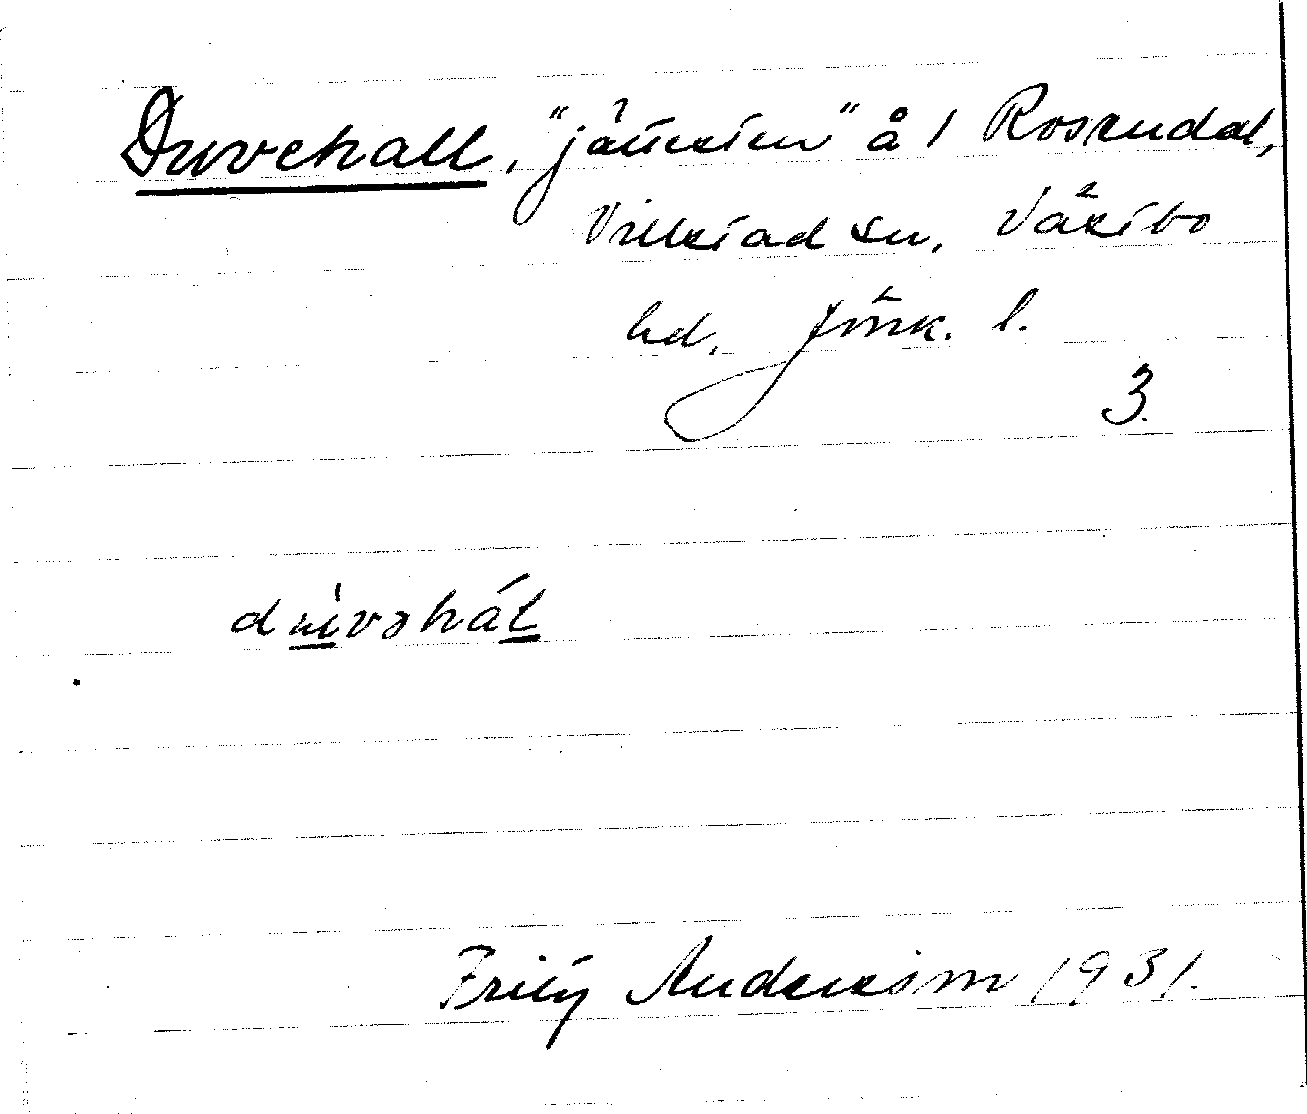 Duvehall, "jättesten" å 1 Rosendal,
Villstad sn, Västbo
hd, Jönk. l.
3.
dúvəhál
Fritz Andersson 1931.